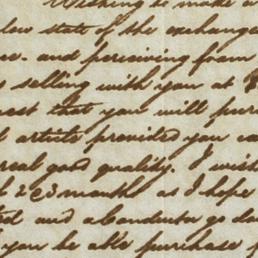 Wishing to make
low state of the exchange
and perceiving from
selling with you at
that you will pur
articles provided you ca
real good quality. I wish
2 & 3 months as I hope
and a Conducta go do
you be able purchase